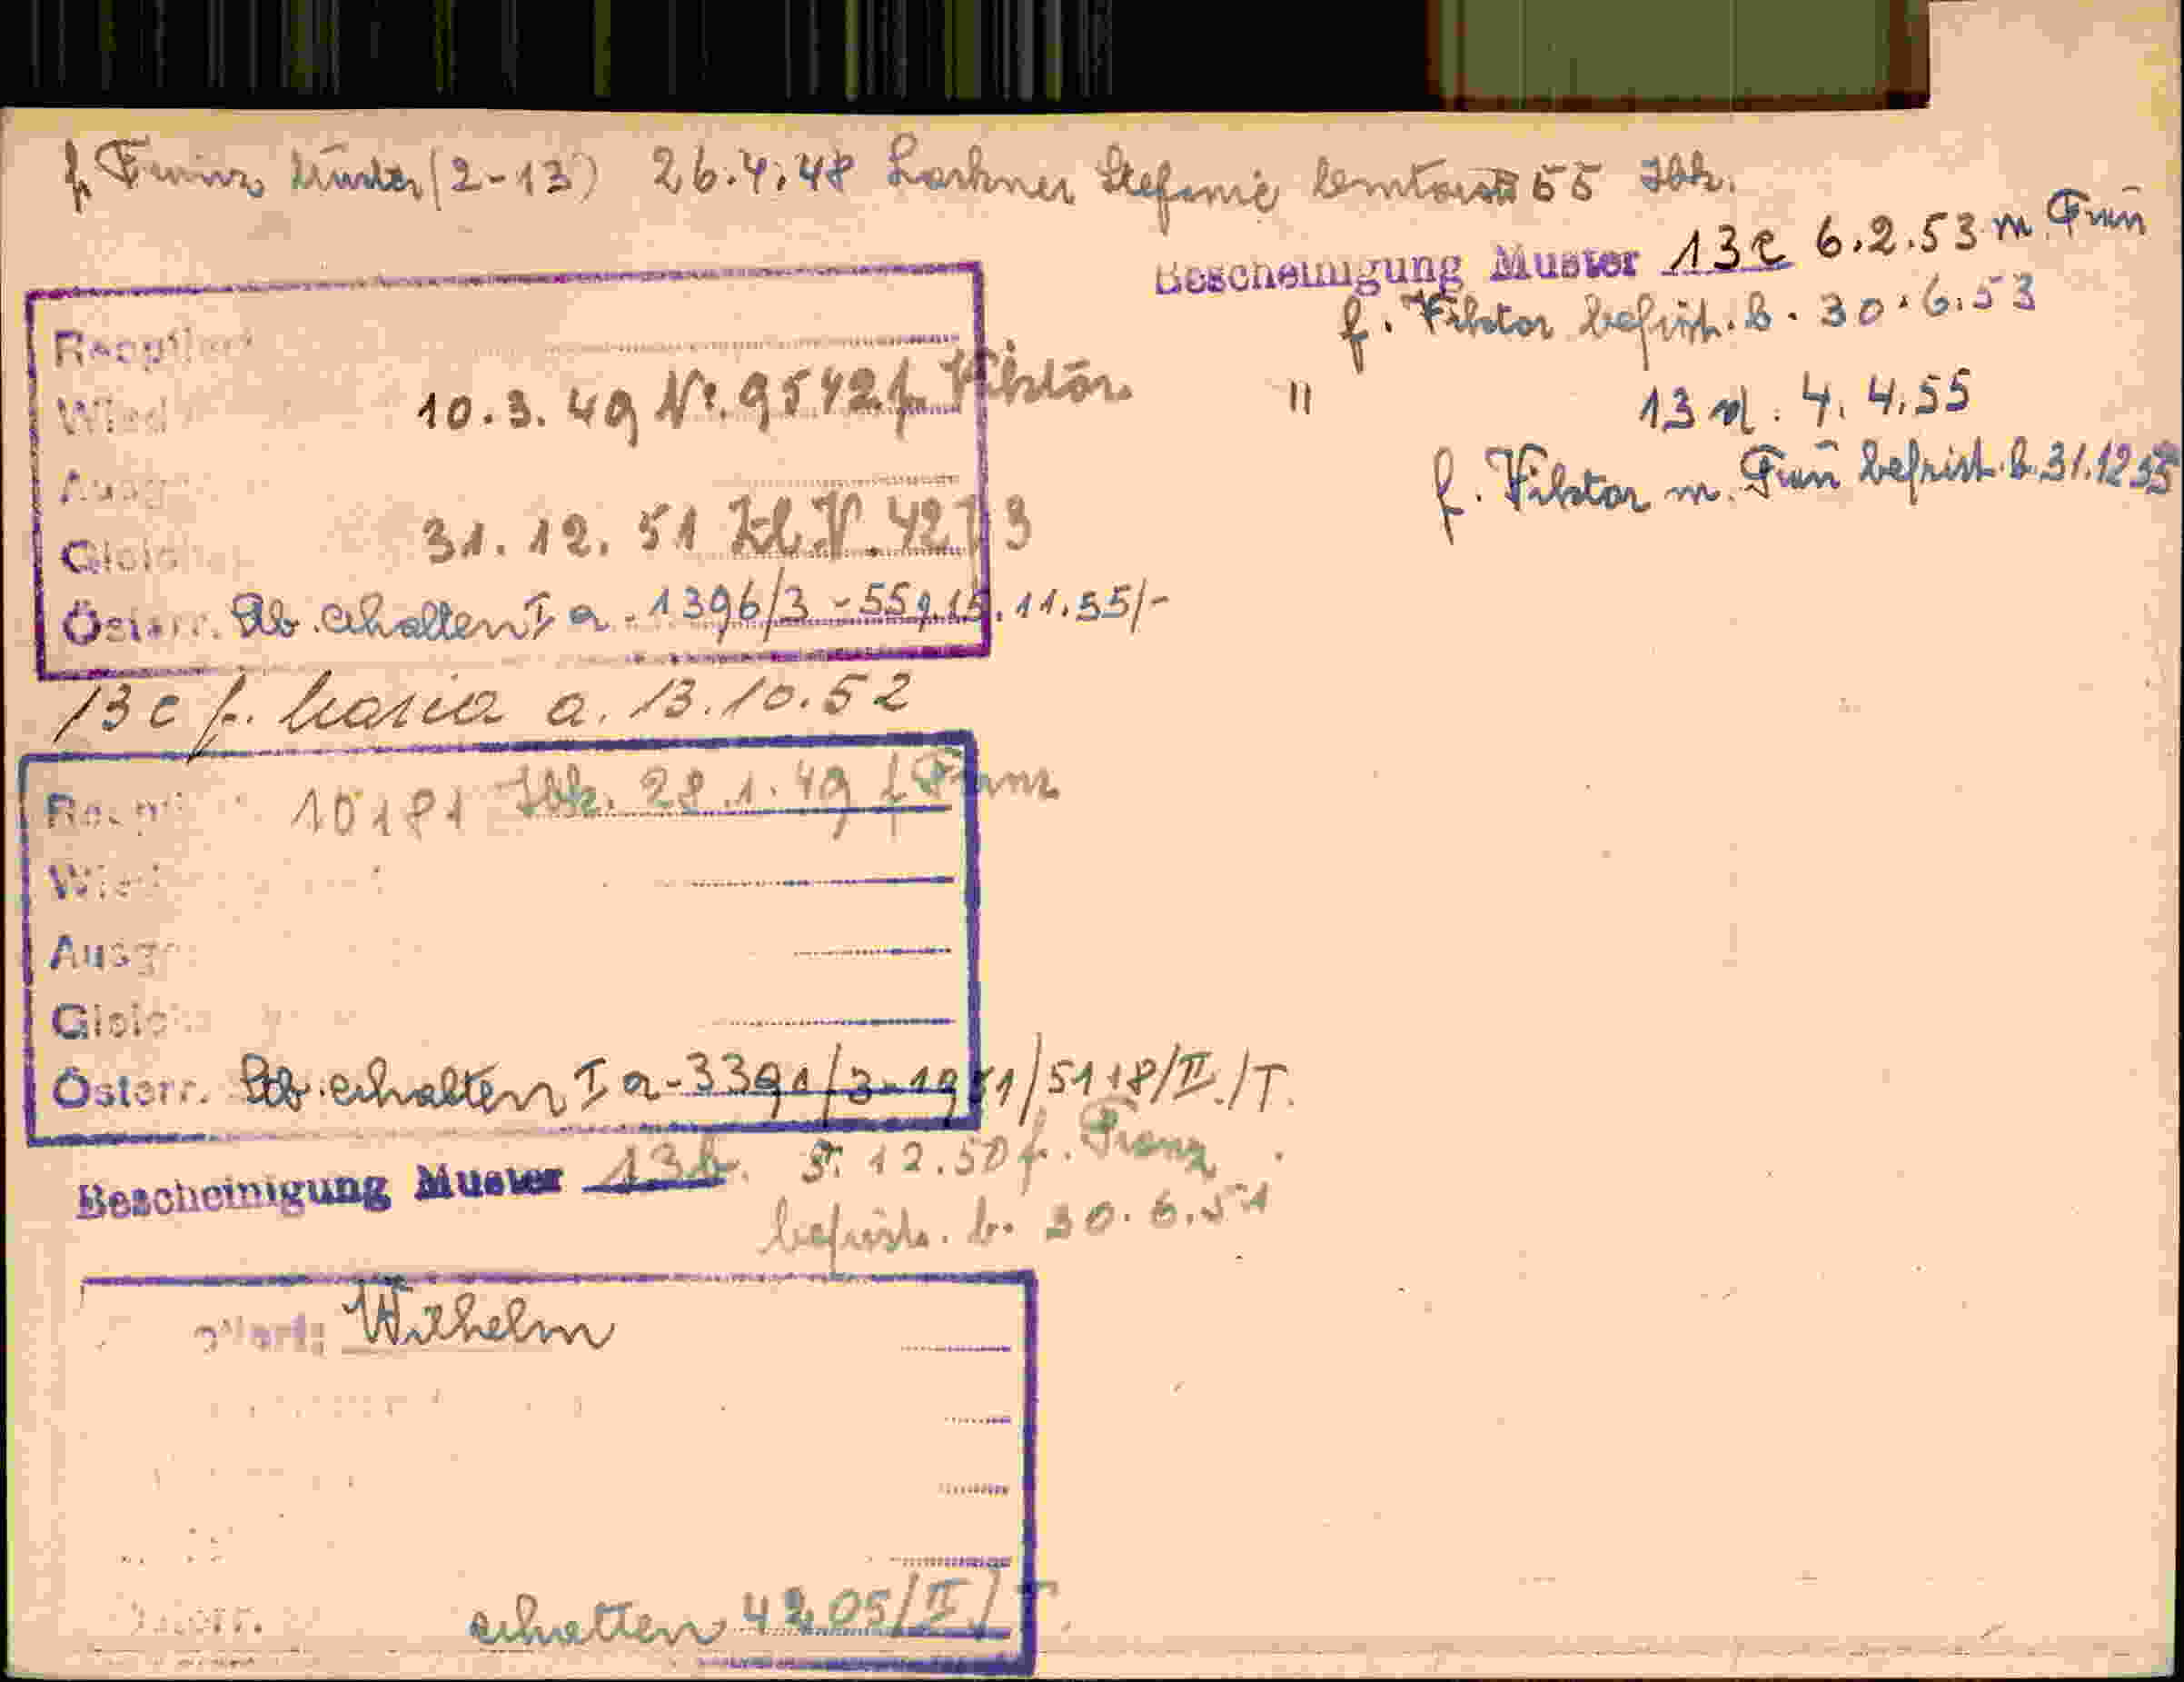 f. Franz Muster (2-13) 26.4.48 Larkner Stefanie 55 Ibk.
Bescheinigung Muster 13e 6.2.53 m. Frau
f. Viktor befrist. b. 30.6.53
" 13 n. 4.4.55
f. Viktor m. Frau befrist. b. 31.12.55
10.3.49 Nr. 9542 f. Viktor
31.12.51 Zl. IV. 4273
Österr. Stb. erhalten I a - 1396/3 - 55 v. 15.11.55/-
13 c f. Maria a. 13.10.52
10181 Ibk. 28.1.49 f. Franz
Österr. Stb. erhalten I a - 3391/3-1951/5118/II./T.
Bescheinigung Muster 13b. 5.12.50 f. Franz
befrist. b. 30.6.51
Wilhelm
erhalten 4205/II/T.